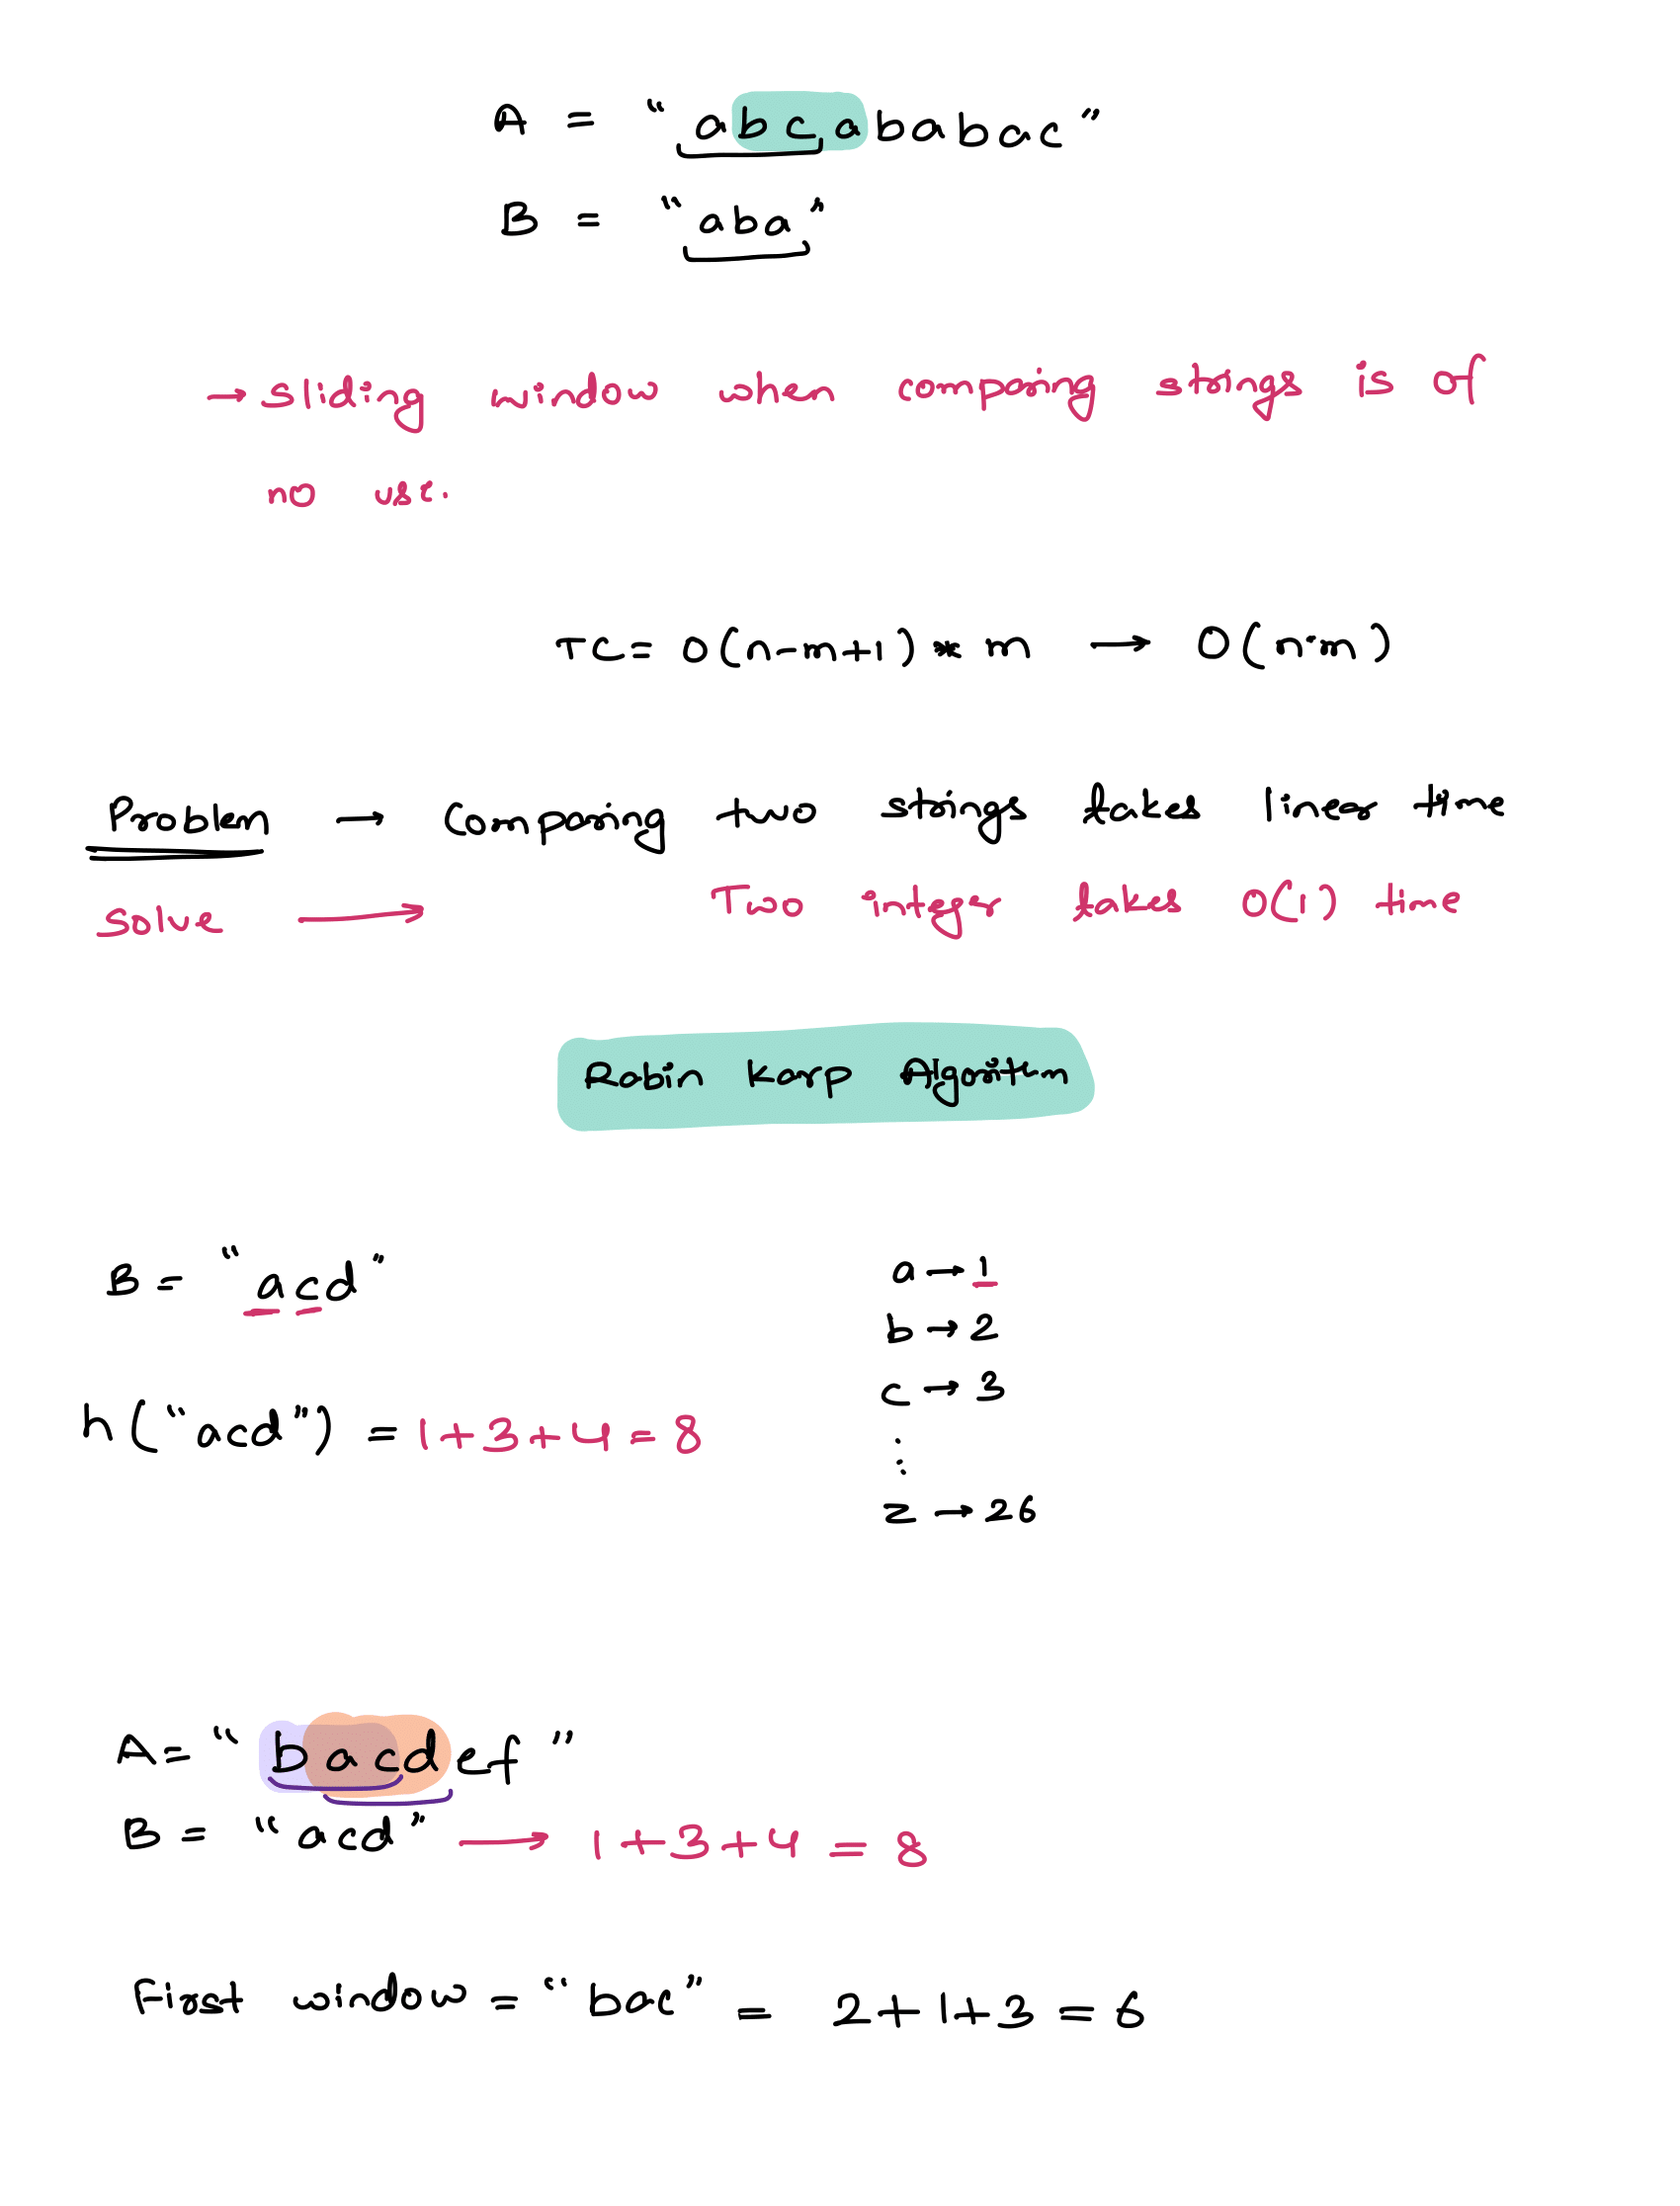 A = "abcababac"
B = "aba"
→ sliding window when comparing strings is of
no use.
TC = O(n-m+1) * m → O(n·m)
Problem → Comparing two strings takes linear time
Solve → Two integer takes O(1) time
Rabin Karp Algorithm
B = "acd"
a → 1
b → 2
c → 3
h("acd") = 1+3+4 = 8
⋮
z → 26
A = "bacdef"
B = "acd" → 1+3+4 = 8
First window = "bac" = 2+1+3 = 6